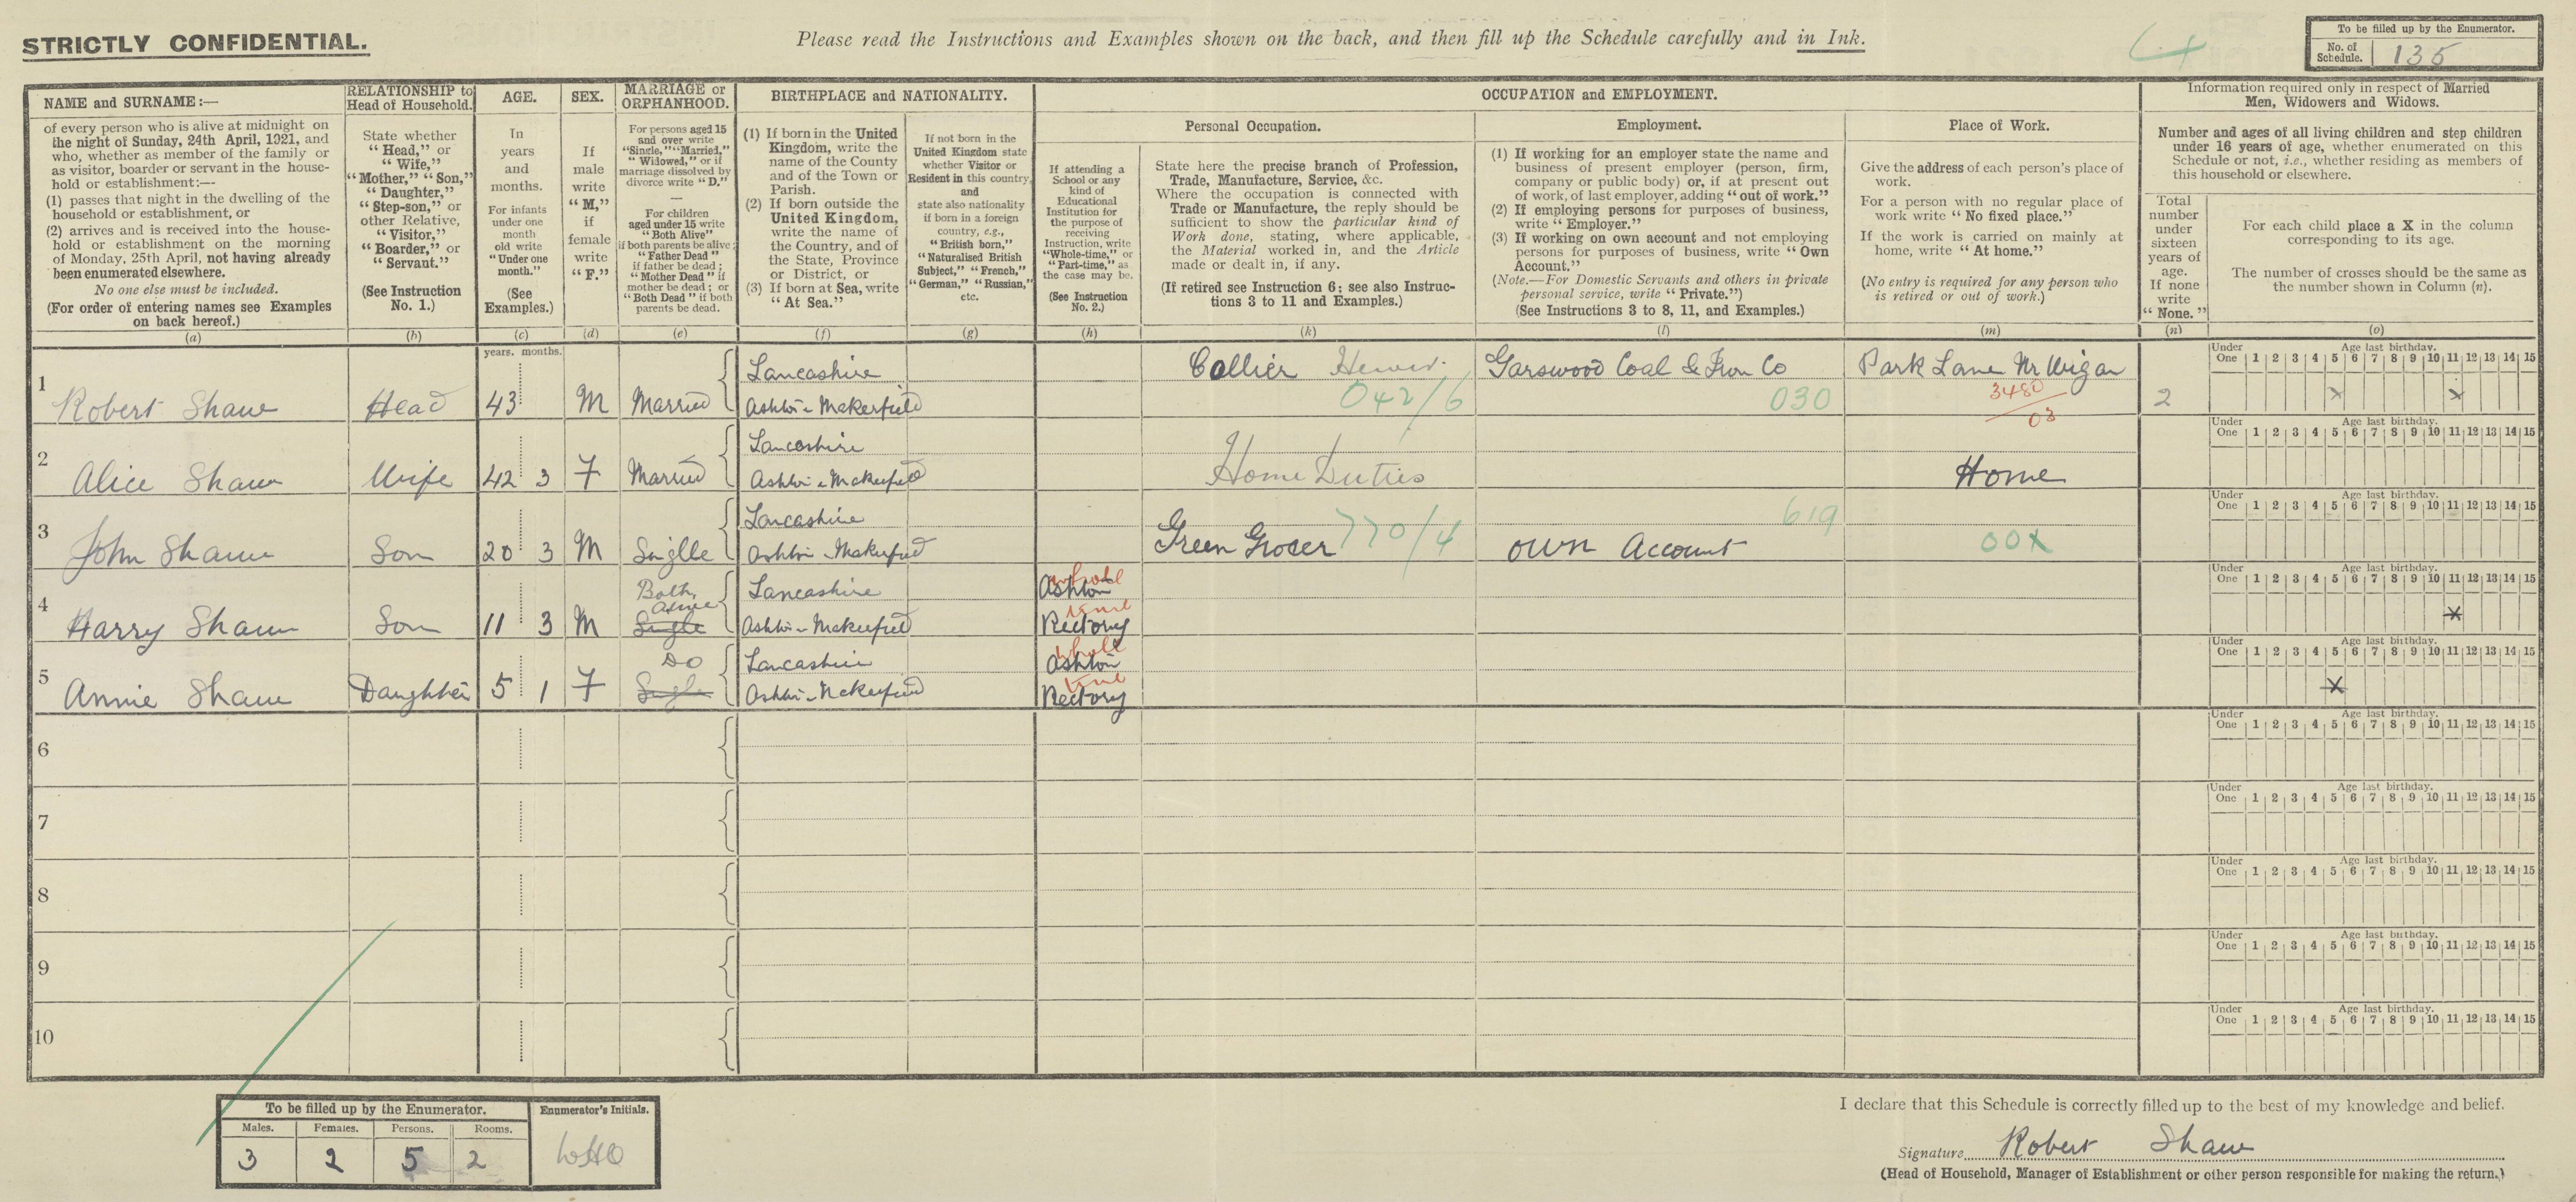 STRICTLY CONFIDENTIAL.
Please read the Instructions and Examples shown on the back, and then fill up the Schedule carefully and in Ink.
To be filled up by the Enumerator.
No. of Schedule. 135
NAME and SURNAME:—
of every person who is alive at midnight on
the night of Sunday, 24th April, 1921, and
who, whether as member of the family or
as visitor, boarder or servant in the house-
hold or establishment:—
(1) passes that night in the dwelling of the
household or establishment, or
(2) arrives and is received into the house-
hold or establishment on the morning
of Monday, 25th April, not having already
been enumerated elsewhere.
No one else must be included.
(For order of entering names see Examples
on back hereof.)
(a)
RELATIONSHIP to
Head of Household.
State whether
"Head," or
"Wife,"
"Mother," "Son,"
"Daughter,"
"Step-son," or
other Relative,
"Visitor,"
"Boarder," or
"Servant."
(See Instruction
No. 1.)
(b)
AGE.
In
years
and
months.
For infants
under one
month
old write
"Under one
month."
(See
Examples.)
(c)
SEX.
If
male
write
"M,"
if
female
write
"F."
(d)
MARRIAGE or
ORPHANHOOD.
For persons aged 15
and over write
"Single," "Married,"
"Widowed," or if
marriage dissolved by
divorce write "D."
—
For children
aged under 15 write
"Both Alive"
if both parents be alive;
"Father Dead"
if father be dead;
"Mother Dead" if
mother be dead; or
"Both Dead" if both
parents be dead.
(e)
BIRTHPLACE and NATIONALITY.
(1) If born in the United
Kingdom, write the
name of the County
and of the Town or
Parish.
(2) If born outside the
United Kingdom,
write the name of
the Country, and of
the State, Province
or District, or
(3) If born at Sea, write
"At Sea."
(f)
If not born in the
United Kingdom state
whether Visitor or
Resident in this country,
and
state also nationality
if born in a foreign
country, e.g.,
"British born,"
"Naturalised British
Subject," "French,"
"German," "Russian,"
etc.
(g)
OCCUPATION and EMPLOYMENT.
Personal Occupation.
If attending a
School or any
kind of
Educational
Institution for
the purpose of
receiving
Instruction, write
"Whole-time," or
"Part-time," as
the case may be.
(See Instruction
No. 2.)
(h)
State here the precise branch of Profession,
Trade, Manufacture, Service, &c.
Where the occupation is connected with
Trade or Manufacture, the reply should be
sufficient to show the particular kind of
Work done, stating, where applicable,
the Material worked in, and the Article
made or dealt in, if any.
(If retired see Instruction 6; see also Instruc-
tions 3 to 11 and Examples.)
(k)
Employment.
(1) If working for an employer state the name and
business of present employer (person, firm,
company or public body) or, if at present out
of work, of last employer, adding "out of work."
(2) If employing persons for purposes of business,
write "Employer."
(3) If working on own account and not employing
persons for purposes of business, write "Own
Account."
(Note.—For Domestic Servants and others in private
personal service, write "Private.")
(See Instructions 3 to 8, 11, and Examples.)
(l)
Place of Work.
Give the address of each person's place of
work.
For a person with no regular place of
work write "No fixed place."
If the work is carried on mainly at
home, write "At home."
(No entry is required for any person who
is retired or out of work.)
(m)
Information required only in respect of Married
Men, Widowers and Widows.
Number and ages of all living children and step children
under 16 years of age, whether enumerated on this
Schedule or not, i.e., whether residing as members of
this household or elsewhere.
Total
number
under
sixteen
years of
age.
If none
write
"None."
(n)
For each child place a X in the column
corresponding to its age.
The number of crosses should be the same as
the number shown in Column (n).
(o)
years. months.
1 Robert Shaw Head 43 M Married Lancashire Ashton-Makerfield Collier Hewer. 042/6 Garswood Coal & Iron Co 030 Park Lane Nr Wigan 3480/03 2
Under One Age last birthday. 1 2 3 4 5 6 7 8 9 10 11 12 13 14 15
X X
2 Alice Shaw Wife 42 3 F Married Lancashire Ashton-Makerfield Home Duties Home
Under One Age last birthday. 1 2 3 4 5 6 7 8 9 10 11 12 13 14 15
3 John Shaw Son 20 3 M Singlle Lancashire Ashton-Makerfield Green Grocer 770/4 own Account 619 00X
Under One Age last birthday. 1 2 3 4 5 6 7 8 9 10 11 12 13 14 15
4 Harry Shaw Son 11 3 M Both Alive Single Lancashire Ashton-Makerfield Ashton Rectory whole time
Under One Age last birthday. 1 2 3 4 5 6 7 8 9 10 11 12 13 14 15
X
5 Annie Shaw Daughter 5 1 F Do Single Lancashire Ashton-Makerfield Ashton Rectory whole time
Under One Age last birthday. 1 2 3 4 5 6 7 8 9 10 11 12 13 14 15
X
6
Under One Age last birthday. 1 2 3 4 5 6 7 8 9 10 11 12 13 14 15
7
Under One Age last birthday. 1 2 3 4 5 6 7 8 9 10 11 12 13 14 15
8
Under One Age last birthday. 1 2 3 4 5 6 7 8 9 10 11 12 13 14 15
9
Under One Age last birthday. 1 2 3 4 5 6 7 8 9 10 11 12 13 14 15
10
Under One Age last birthday. 1 2 3 4 5 6 7 8 9 10 11 12 13 14 15
To be filled up by the Enumerator.
Enumerator's Initials.
Males. Females. Persons. Rooms.
3 2 5 2
I declare that this Schedule is correctly filled up to the best of my knowledge and belief.
Signature Robert Shaw
(Head of Household, Manager of Establishment or other person responsible for making the return.)